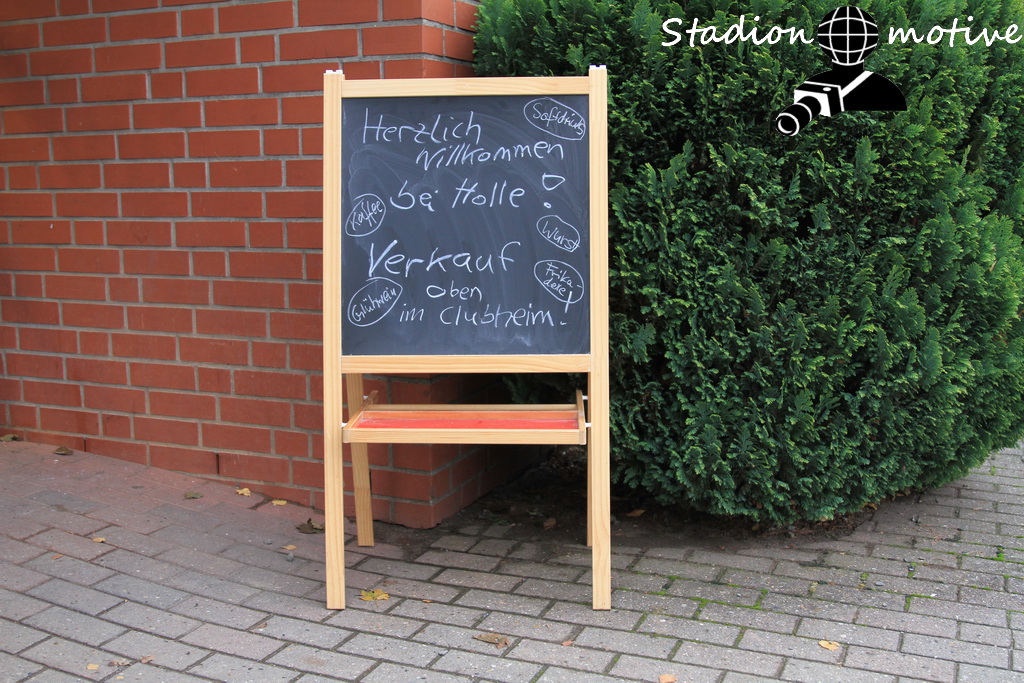 Stadion motive
Softdrinks
Herzlich
Willkommen
bei Holle!
Kaffee
Wurst
Verkauf
Frika-
delle
Glühwein
oben
im Clubheim!